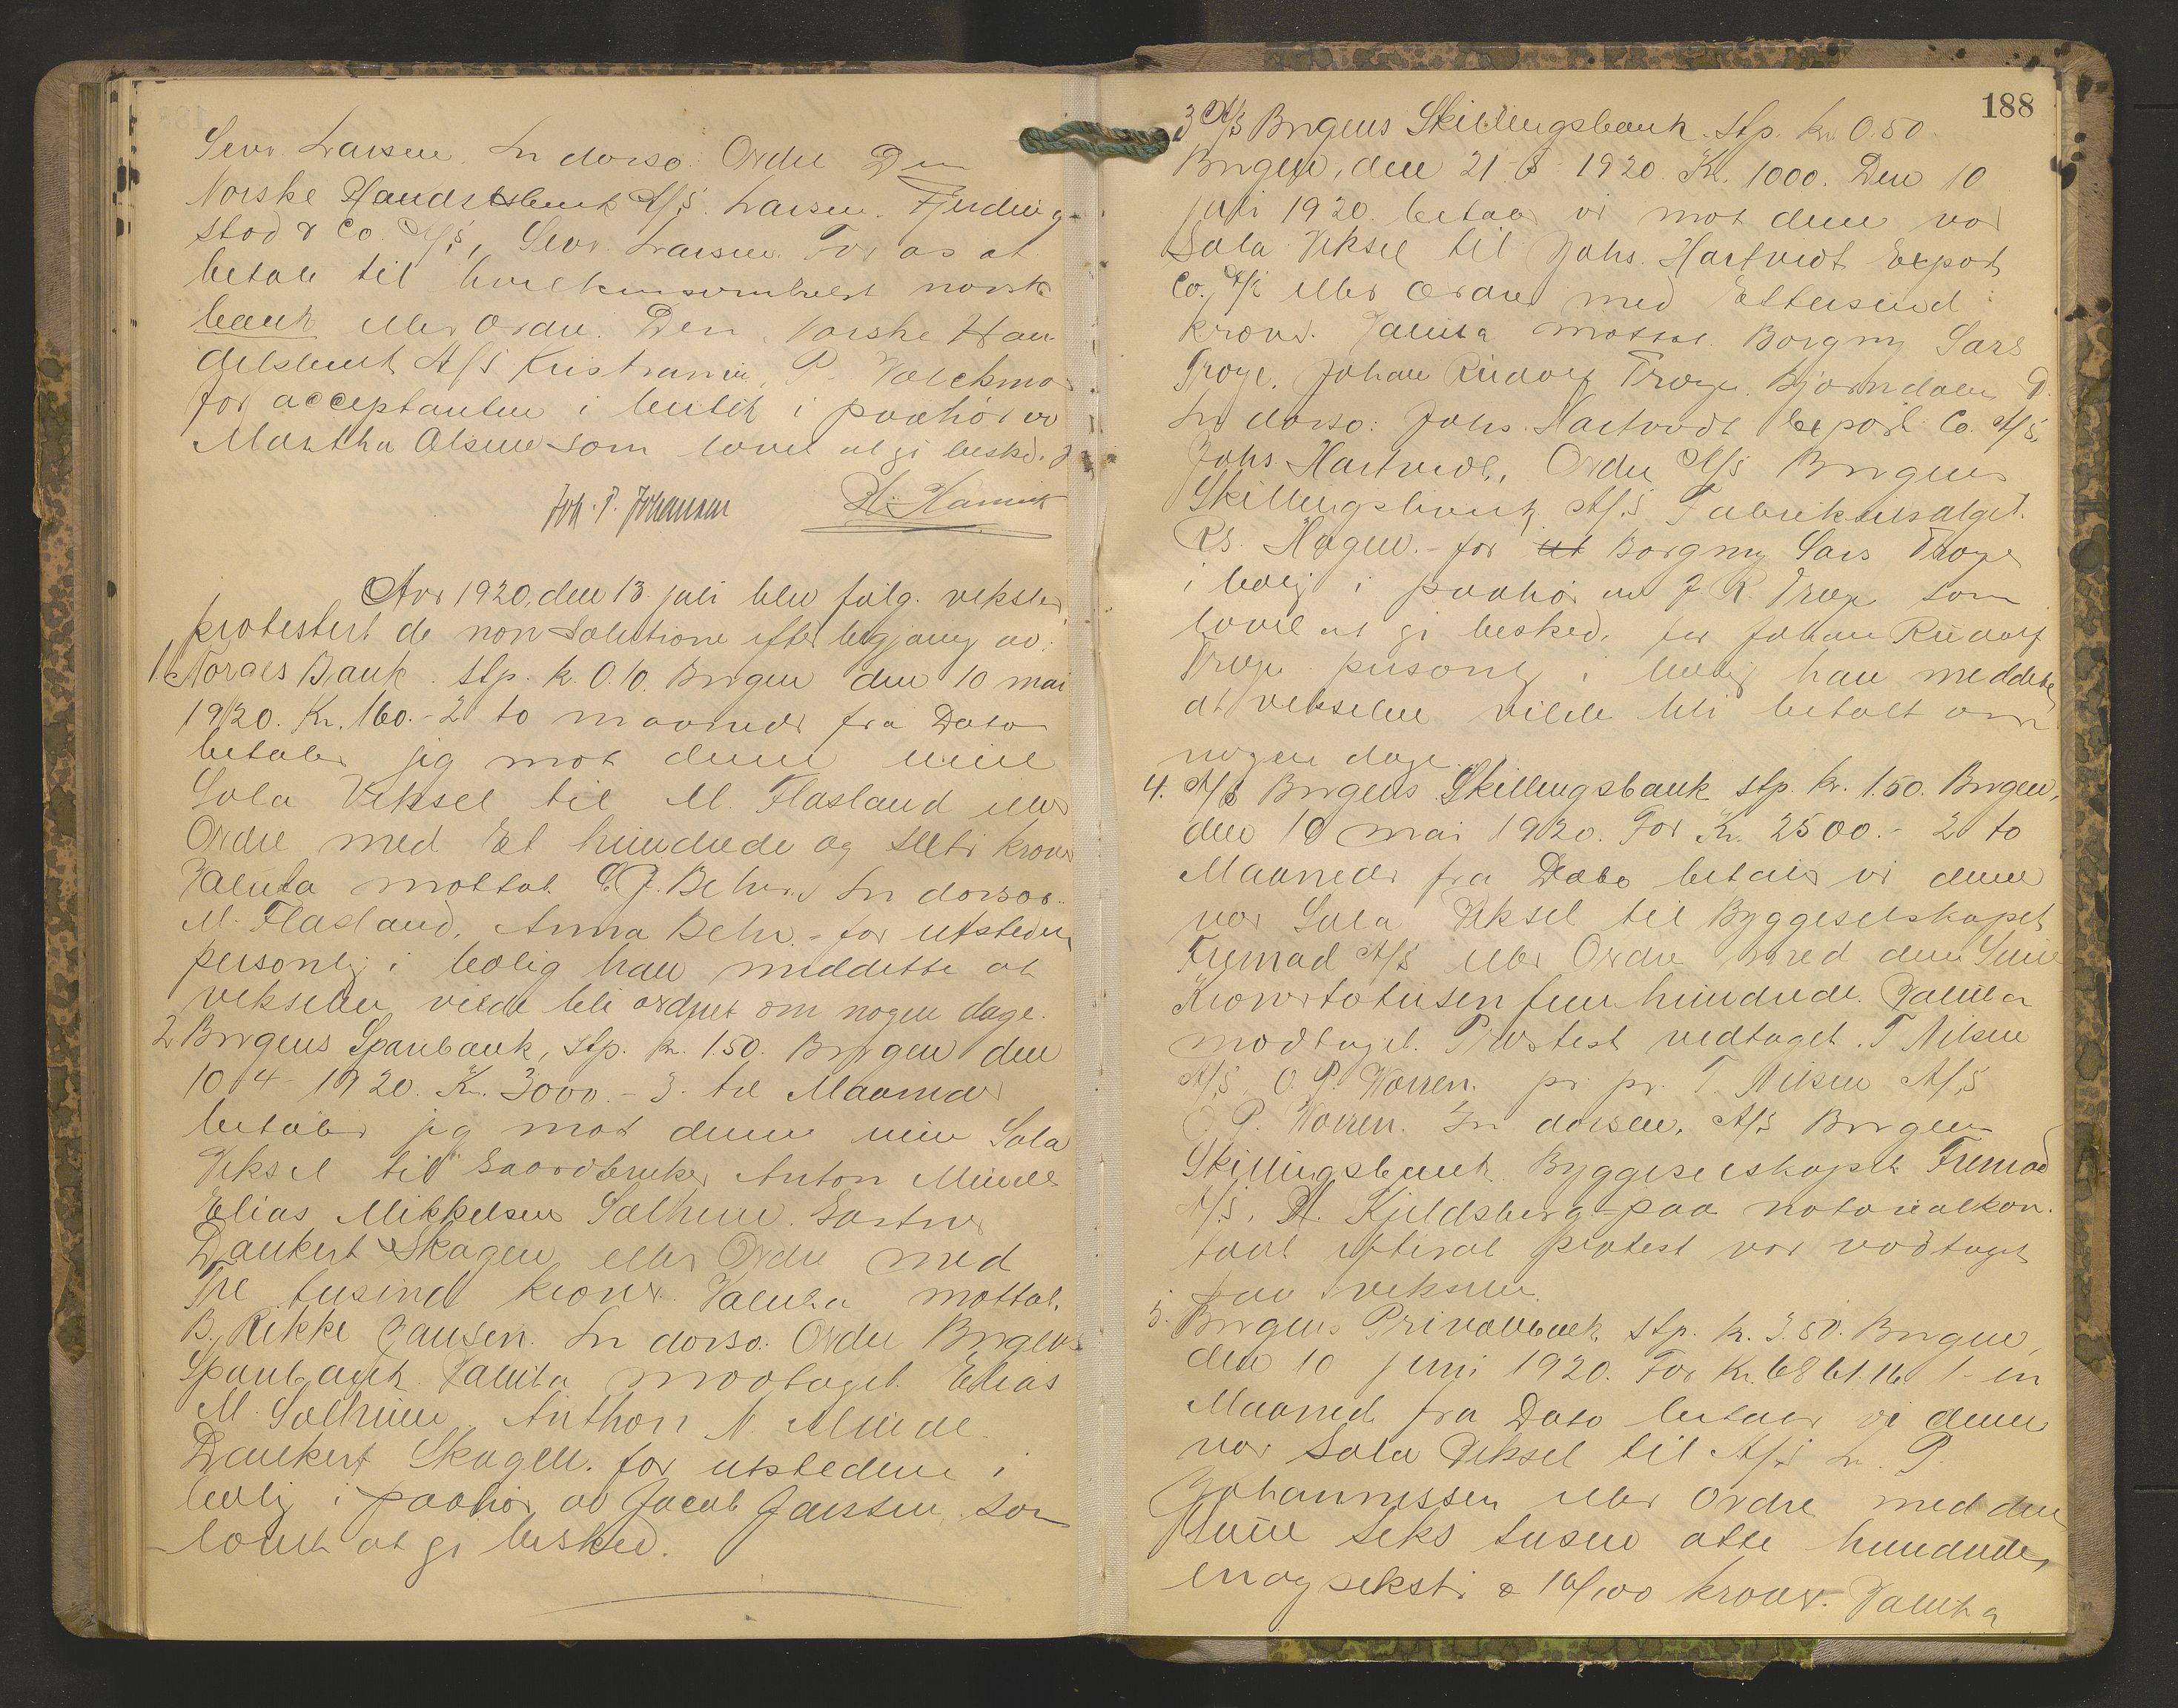 Sevr. Larsen. In dorso: Ordre Den
Norske Handelsbank A/S. Larsen. Fjerding-
stad & Co. A/S, Sevr. Larsen. For os at
betale til hvilkensomhelst norsk
bank eller Ordre. Den Norske Han-
delsbank A/S Kristiania, P.
for acceptanten i butik i paahør av
Martha Olsen som lovet at gi besked.
Joh. P. Johansen
Aar 1920, den 13 juli blev følg. veksler
protestert de non solutione efter begjæring av:
1. Norges Bank. Stp. k. 0.10. Bergen den 10 mai
1920. Kr. 160.- 2 to maaneder fra Dato
betaler jeg mot denne min
Sola Veksel til M. Flasland eller
Ordre med Et hundrede og seksti kroner
Valuta mottat. C.J. Behr. In dorso:
M. Flasland, Anna Behr.- for utstederen
personlig i bolig han meddelte at
vekselen vilde bli ordnet om nogen dage.
2. Bergens Sparebank, Stp. kr. 1.50. Bergen den
10-4-1920. Kr. 3000.- 3. tre Maaneder
betaler jeg mot denne min Sola
Veksel til Gaardbruker Anton Minde
Elias Mikkelsen Solheim. Gartner
Dankert Skagen eller Ordre med
Tre tusind kroner. Valuta mottat.
B. Rikke Jansen. In dorso: Ordre Bergens
Sparebank. Valuta modtaget. Elias
M. Solheim. Anthon N. Minde.
Dankert Skagen. for utstederen i
bolig i paahør av Jacob Jansen, som
lovet at gi besked.
188
3 A/S Bergens Skillingsbank. Stp. kr. 0.50.
Bergen, den 21-5-1920. Kr. 1000. Den 10
juli 1920. betaler vi mot denne vor
Sola Veksel til Johs. Hartvedt Export
Co. A/S eller Ordre med Ettusind
kroner. Valuta mottat. Borgny Sars
Troye. Johan Rudolf Troye. Bjørndalen
In dorso: Johs. Hartvedt Export Co. A/S,
Johs. Hartvedt, Ordre A/S Bergens
Skillingsbank A/S Fabrikutsalget.
Rs. Hagen.- for ut Borgny Sars Troye
i bolig i paahør av J. R. Troye som
lovet at gi besked, for Johan Rudolf
Troye personlig i bolig han meddelte
at vekselen vilde bli betalt om
nogen dage.
4. A/S Bergens Skillingsbank Stp. kr. 1.50. Bergen,
den 10 mai 1920. For Kr. 2500.- 2 to
Maaneder fra Dato betaler vi denne
vor Sola Veksel til Byggeselskapet
Fremad A/S eller Ordre med den Sum
Kroner totusen fem hundrede. Valuta
modtaget. Protest vedtaget. T Nilsen
A/S O. P. Worren. pr. pr. T. Nilsen A/S
O. P. Worren. In dorso, A/S Bergens
Skillingsbank. Byggeselskapet Fremad
A/S, H. Kjeldsberg - paa notarialkon-
toret efterat protest var vedtaget
paa vekselen.
5. Bergens Privatbank, Stp. kr. 3.50. Bergen,
den 10 juni 1920. For Kr. 6861.16 1- en
Maaned fra Dato betaler vi denne
vor Sola Veksel til A/S L. P.
Johannessen eller Ordre med den
Sum Seks tusen otte hundrede,
en og seksti & 16/100 kroner. Valuta